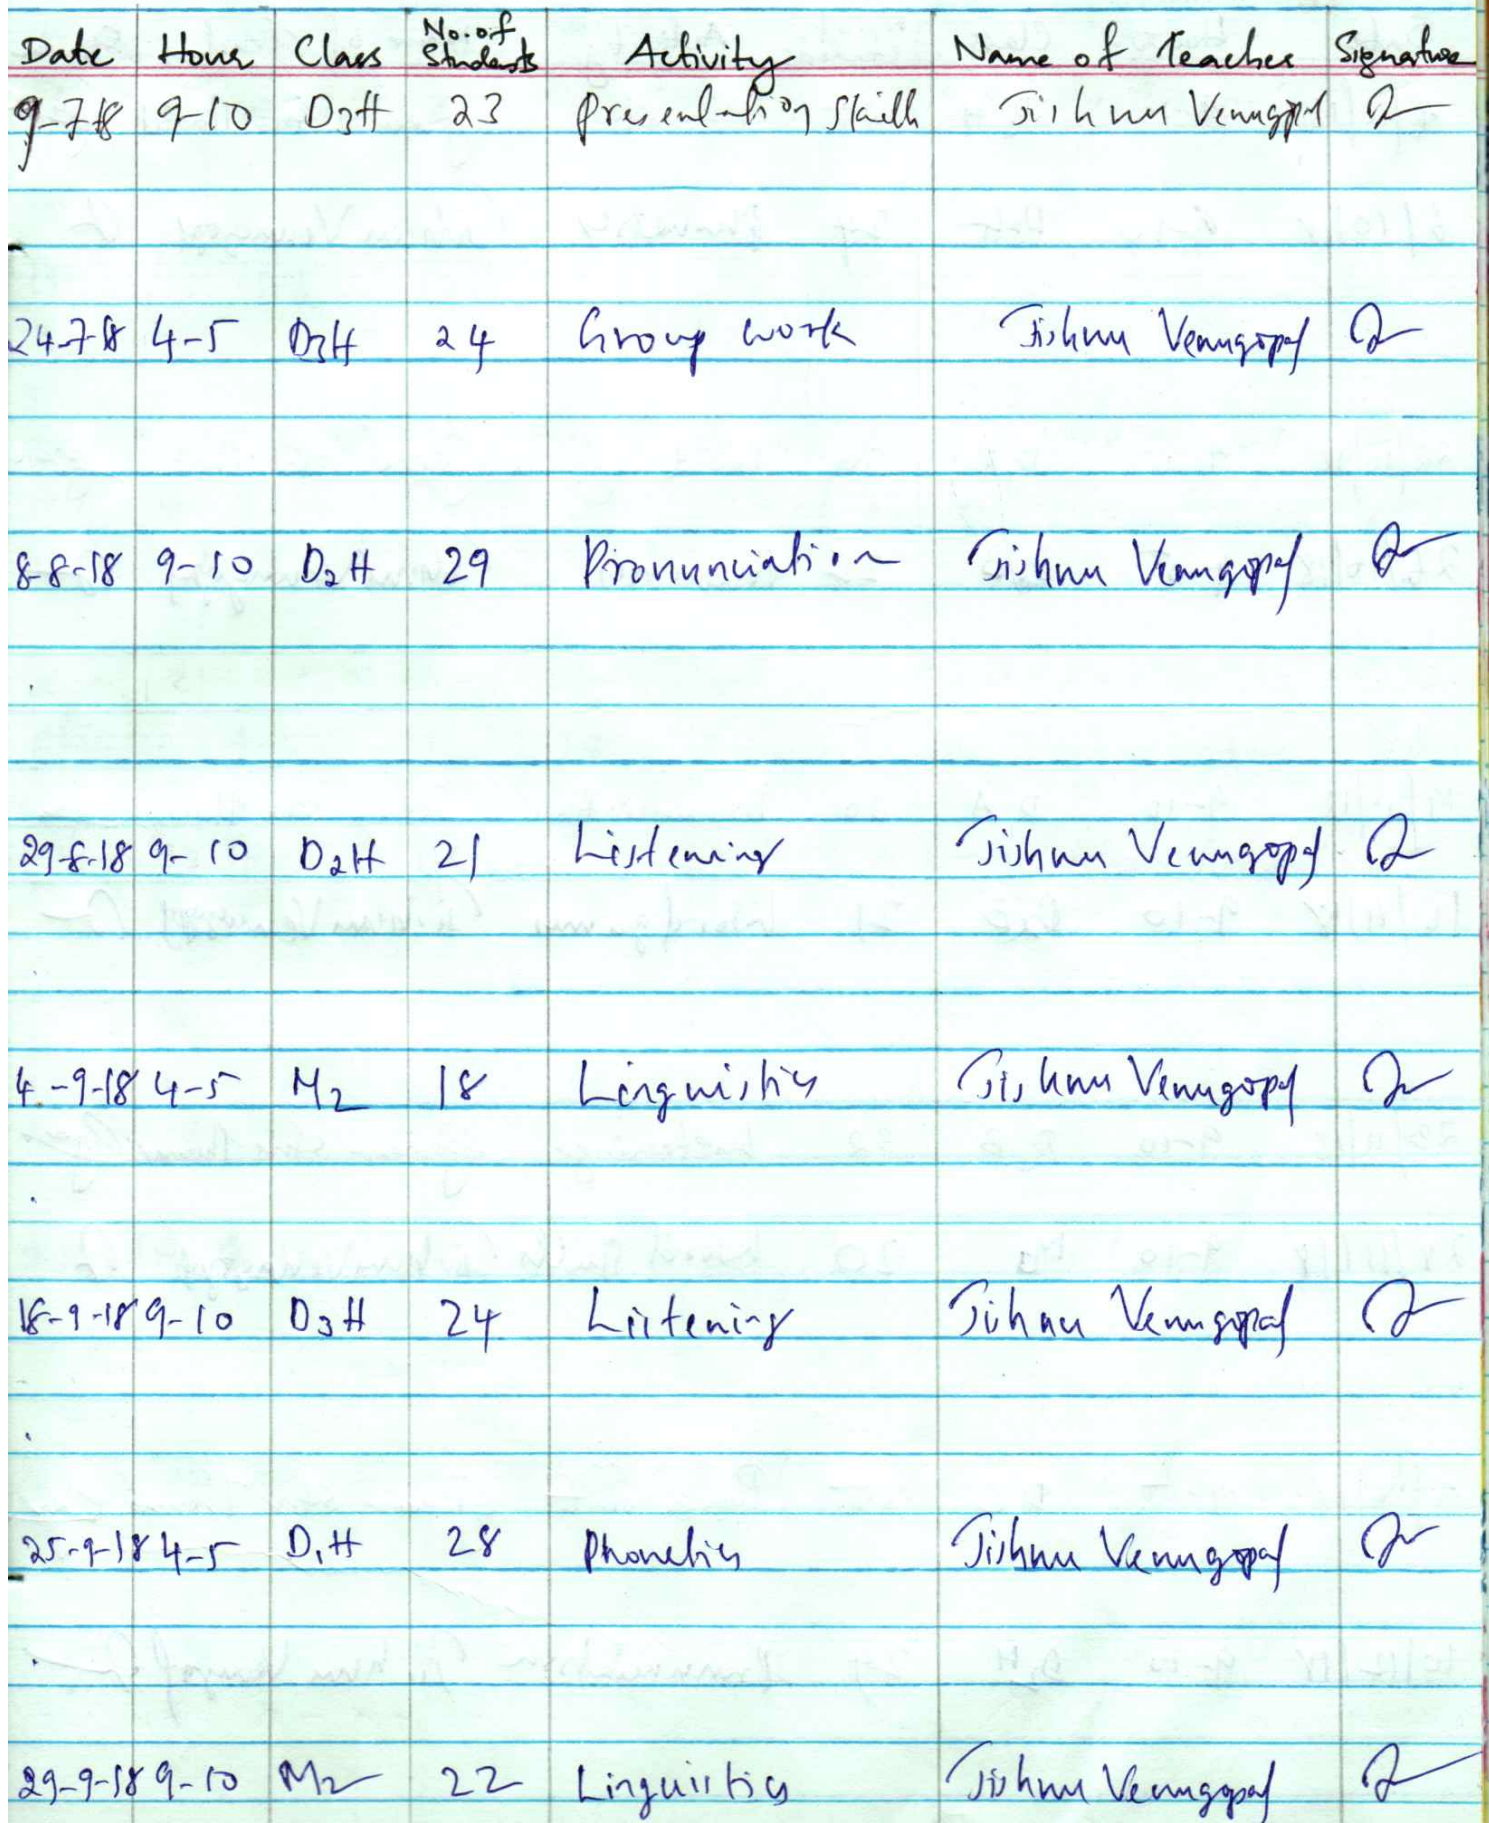 Date Hour Class No. of Students Activity Name of Teacher Signature
9-7-18 9-10 D3H 23 Presentation Skills Jishnu Venugopal
24-7-18 4-5 D3H 24 Group work Jishnu Venugopal
8-8-18 9-10 D2H 29 Pronunciation Jishnu Venugopal
29-8-18 9-10 D2H 21 Listening Jishnu Venugopal
4-9-18 4-5 M2 18 Linguistics Jishnu Venugopal
18-9-18 9-10 D3H 24 Listening Jishnu Venugopal
25-9-18 4-5 D1H 28 Phonetics Jishnu Venugopal
29-9-18 9-10 M2 22 Linguistics Jishnu Venugopal